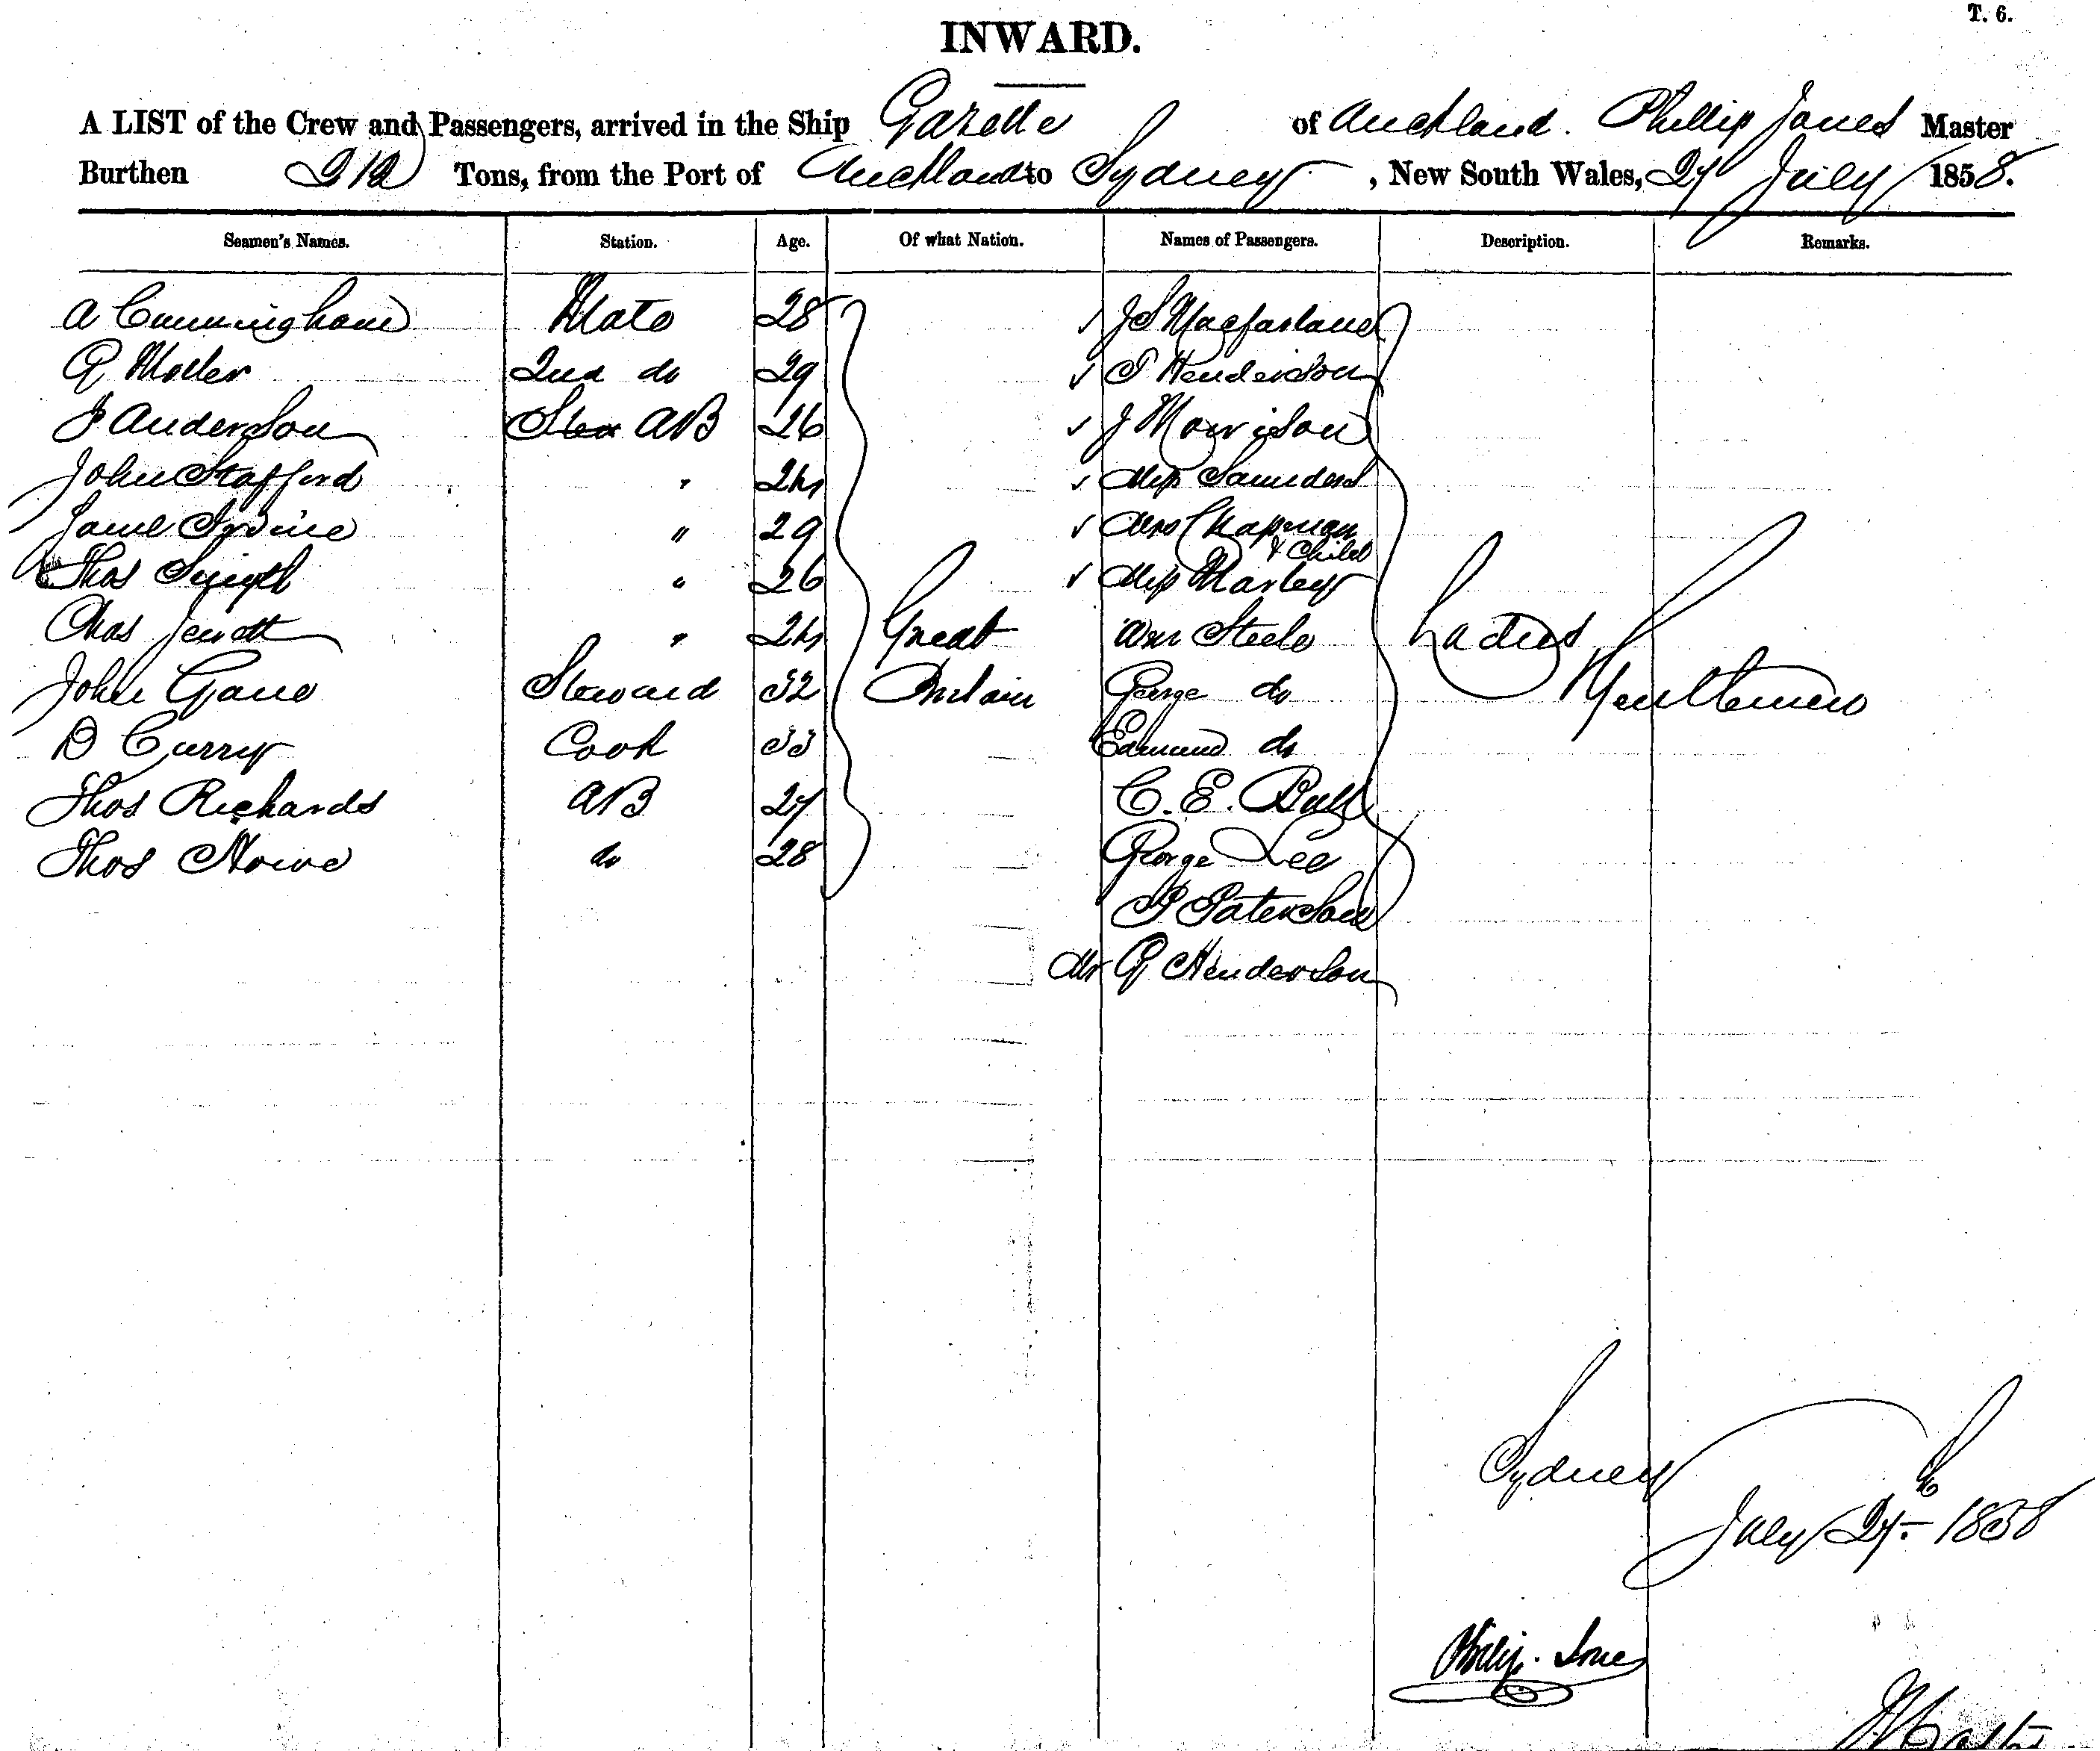 T. 6.
INWARD.
A LIST of the Crew and Passengers, arrived in the Ship Gazelle of Auckland. Phillip Jones Master
Burthen 212 Tons, from the Port of Auckland to Sydney, New South Wales, 27 July 1858.
Seamen's Names. Station. Age. Of what Nation. Names of Passengers. Description. Remarks.
A Cunningham Mate 28 J S Macfarlane
G Moller 2nd do 29 Henderson
Anderson AB 26 J Morrison
John Stafford " 24 Miss Saunders
Irvine " 29 Mrs Chapman
& Child
Thos Smyth " 26 Miss Marley
Chas Jewett " 24 Great Wm Steele Ladies
John Gane Steward 32 Britain George do Gentlemen
D Curry Cook 33 Edmund do
Thos Richards AB 27 C. E. Bull
Thos Howe do 28 George Lee
P Paterson
Mr G Henderson
Sydney
July 27th 1858
Philip Jones
Master